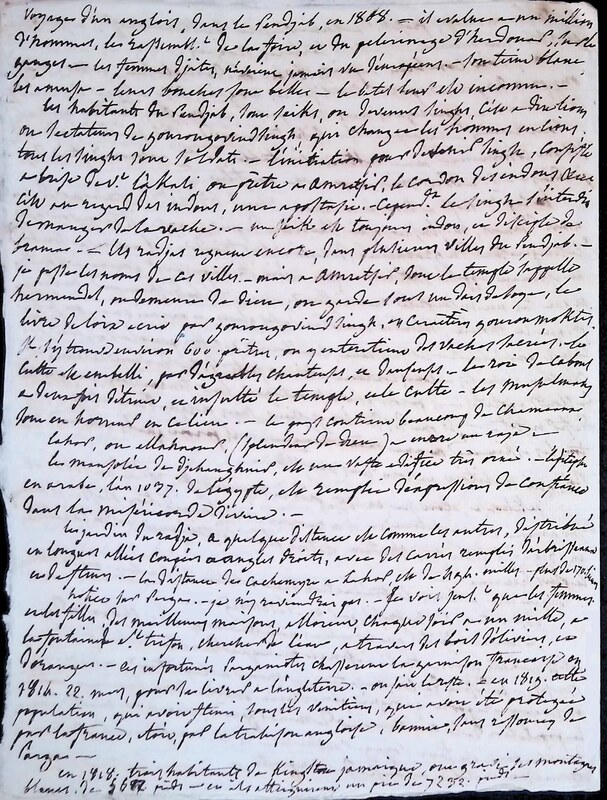 Voyages d'un anglois, dans le Pendjab, en 1808. — il evalue a un million
d'hommes, les rassembl.t de la foire, et du pelerinage d'herdouar, sur le
ganges — les femmes djates, n'avoient jamais vu d'européens. — son teint blanc
les amusa — leurs bouches sont belles — le betel leur est inconnu. —
les habitants du Pendjab, sont seiks, ou devenus singhs, c'est a dire lions
ou sectateurs de gourougovindsingh, qui changea les hommes en lions.
tous les singhs sont soldats. — l'initiation pour devenir singh, consiste
a de l'akali ou prêtre a Amretser, le cordon des indous
c'est au regard des indous, une apostasie. — cepend.t le singh s'interdit
de manger de la vache. — un seik est toujours indou, et disciple de
brama. — les radjas regnent encore, dans plusieurs villes du Pendjab. —
je passe les noms de ces villes. — mais a Amretser, dont le temple s'appelle
hermendel, ou demeure de dieu, on garde sous un dais de soye, le
livre de loix ecrit par gourougovindsingh, en caractères gouroumoktis.
environ 600 prêtres, on y entretient des vaches sacrées. le
culte est embelli, par d'agréables chanteurs, et danseurs. — les rois de Caboul
a deux fois détruit, et insulté le temple, et le culte — les musulmans
sont en horreur en ce lieu. — le pays contient beaucoup de
Lahor, ou allahnour, (splendeur de dieu) a encore un raja —
les mausolée de djehanghuir, est une vaste edifice très orné. — l'épitaphe
en arabe, l'an 1037. de l'égypte, est remplie d'expressions de confiance
dans la miséricorde divine. —
les jardin du radja, a quelque distance est comme les autres, distribué
en longues allées coupées en angles droits, avec des carrés remplis d'arbrisseaux
et de fleurs. — la distance de Cachemyre a Lahor, est de milles —
notice sur Parga. — je n'y reviendrai pas. — Je vois seul.t que les femmes
et les filles, des meilleures maisons, alloient, chaque jour a un mille, a
la fontaine s.t trifon, chercher de l'eau, a travers des bois d'oliviers, et
d'oranges. — ces infortunés Parganiotes chasserent la garnison française en
1814. 22. mars, pour se livrer a l'angleterre. — on sait le reste. — en 1819. cette
population, qui avoit fleuri, sous les vénitiens, qui avoit été protégée
par la france, etoit, par la trahison angloise, bannie, sans ressources de
Parga —
en 1818. trois habitants de Kingston jamaique, ont gravi des montagnes
bleues, de pieds — et ils atteignirent un pic de 7232. pieds —